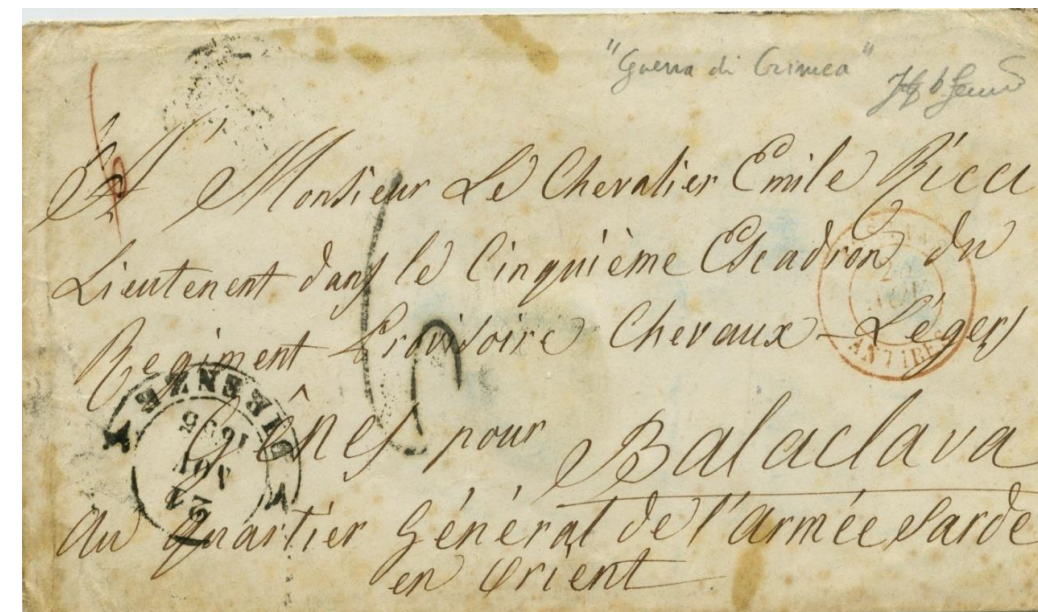 "Guerra di Crimea"
A Monsieur Le Chevalier Emile Ricci
Lieutenent dans le Cinquième Escadron du
Regiment Provisoire Chevaux-Légers
Gênes pour Balaclava
au Quartier Général de l'armée Sarde
en Orient
6
FIRENZE
1855
27
ANTIBES